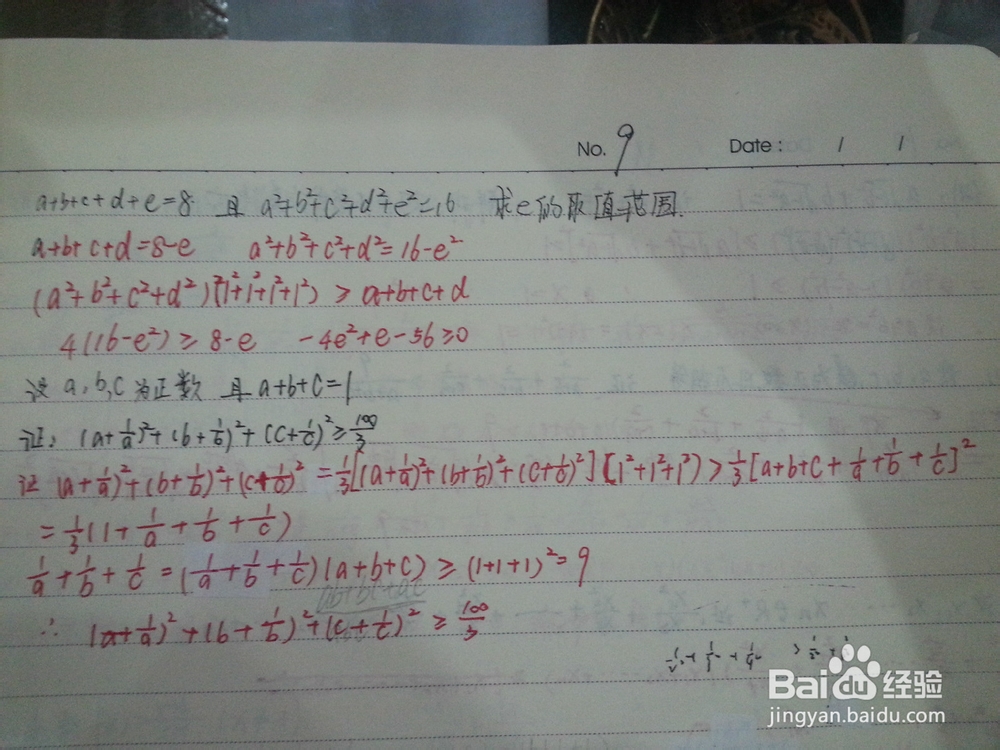 No. 9 Date: / /
a+b+c+d+e=8 且 a²+b²+c²+d²+e²=16 求e的取值范围.
a+b+c+d=8-e a²+b²+c²+d²=16-e²
(a²+b²+c²+d²)(1²+1²+1²+1²) ≥ a+b+c+d
4(16-e²) ≥ 8-e -4e²+e-56≥0
设 a,b,c为正数 且a+b+c=1
证: (a+1/a)²+(b+1/b)²+(c+1/c)²≥100/3
证 (a+1/a)²+(b+1/b)²+(c+1/c)² =1/3[(a+1/a)²+(b+1/b)²+(c+1/c)²](1²+1²+1²)>1/3[a+b+c+1/a+1/b+1/c]²
=1/3(1+1/a+1/b+1/c)
1/a+1/b+1/c=(1/a+1/b+1/c)(a+b+c) ≥ (1+1+1)²=9
∴ (a+1/a)²+(b+1/b)²+(c+1/c)² ≥ 100/3
Baidu经验
jingyan.baidu.com